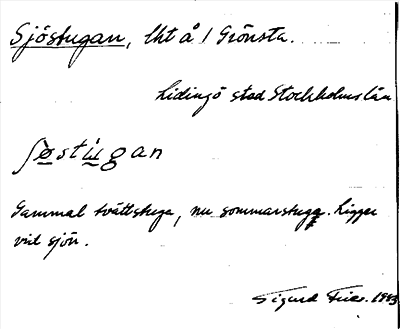 Sjöstugan, lht å 1 Grönsta.
Lidingö stad Stockholms län
ʃøstʉgan
Gammal tvättstuga, nu sommarstuga. Ligger
vid sjön.
Sigurd 1943